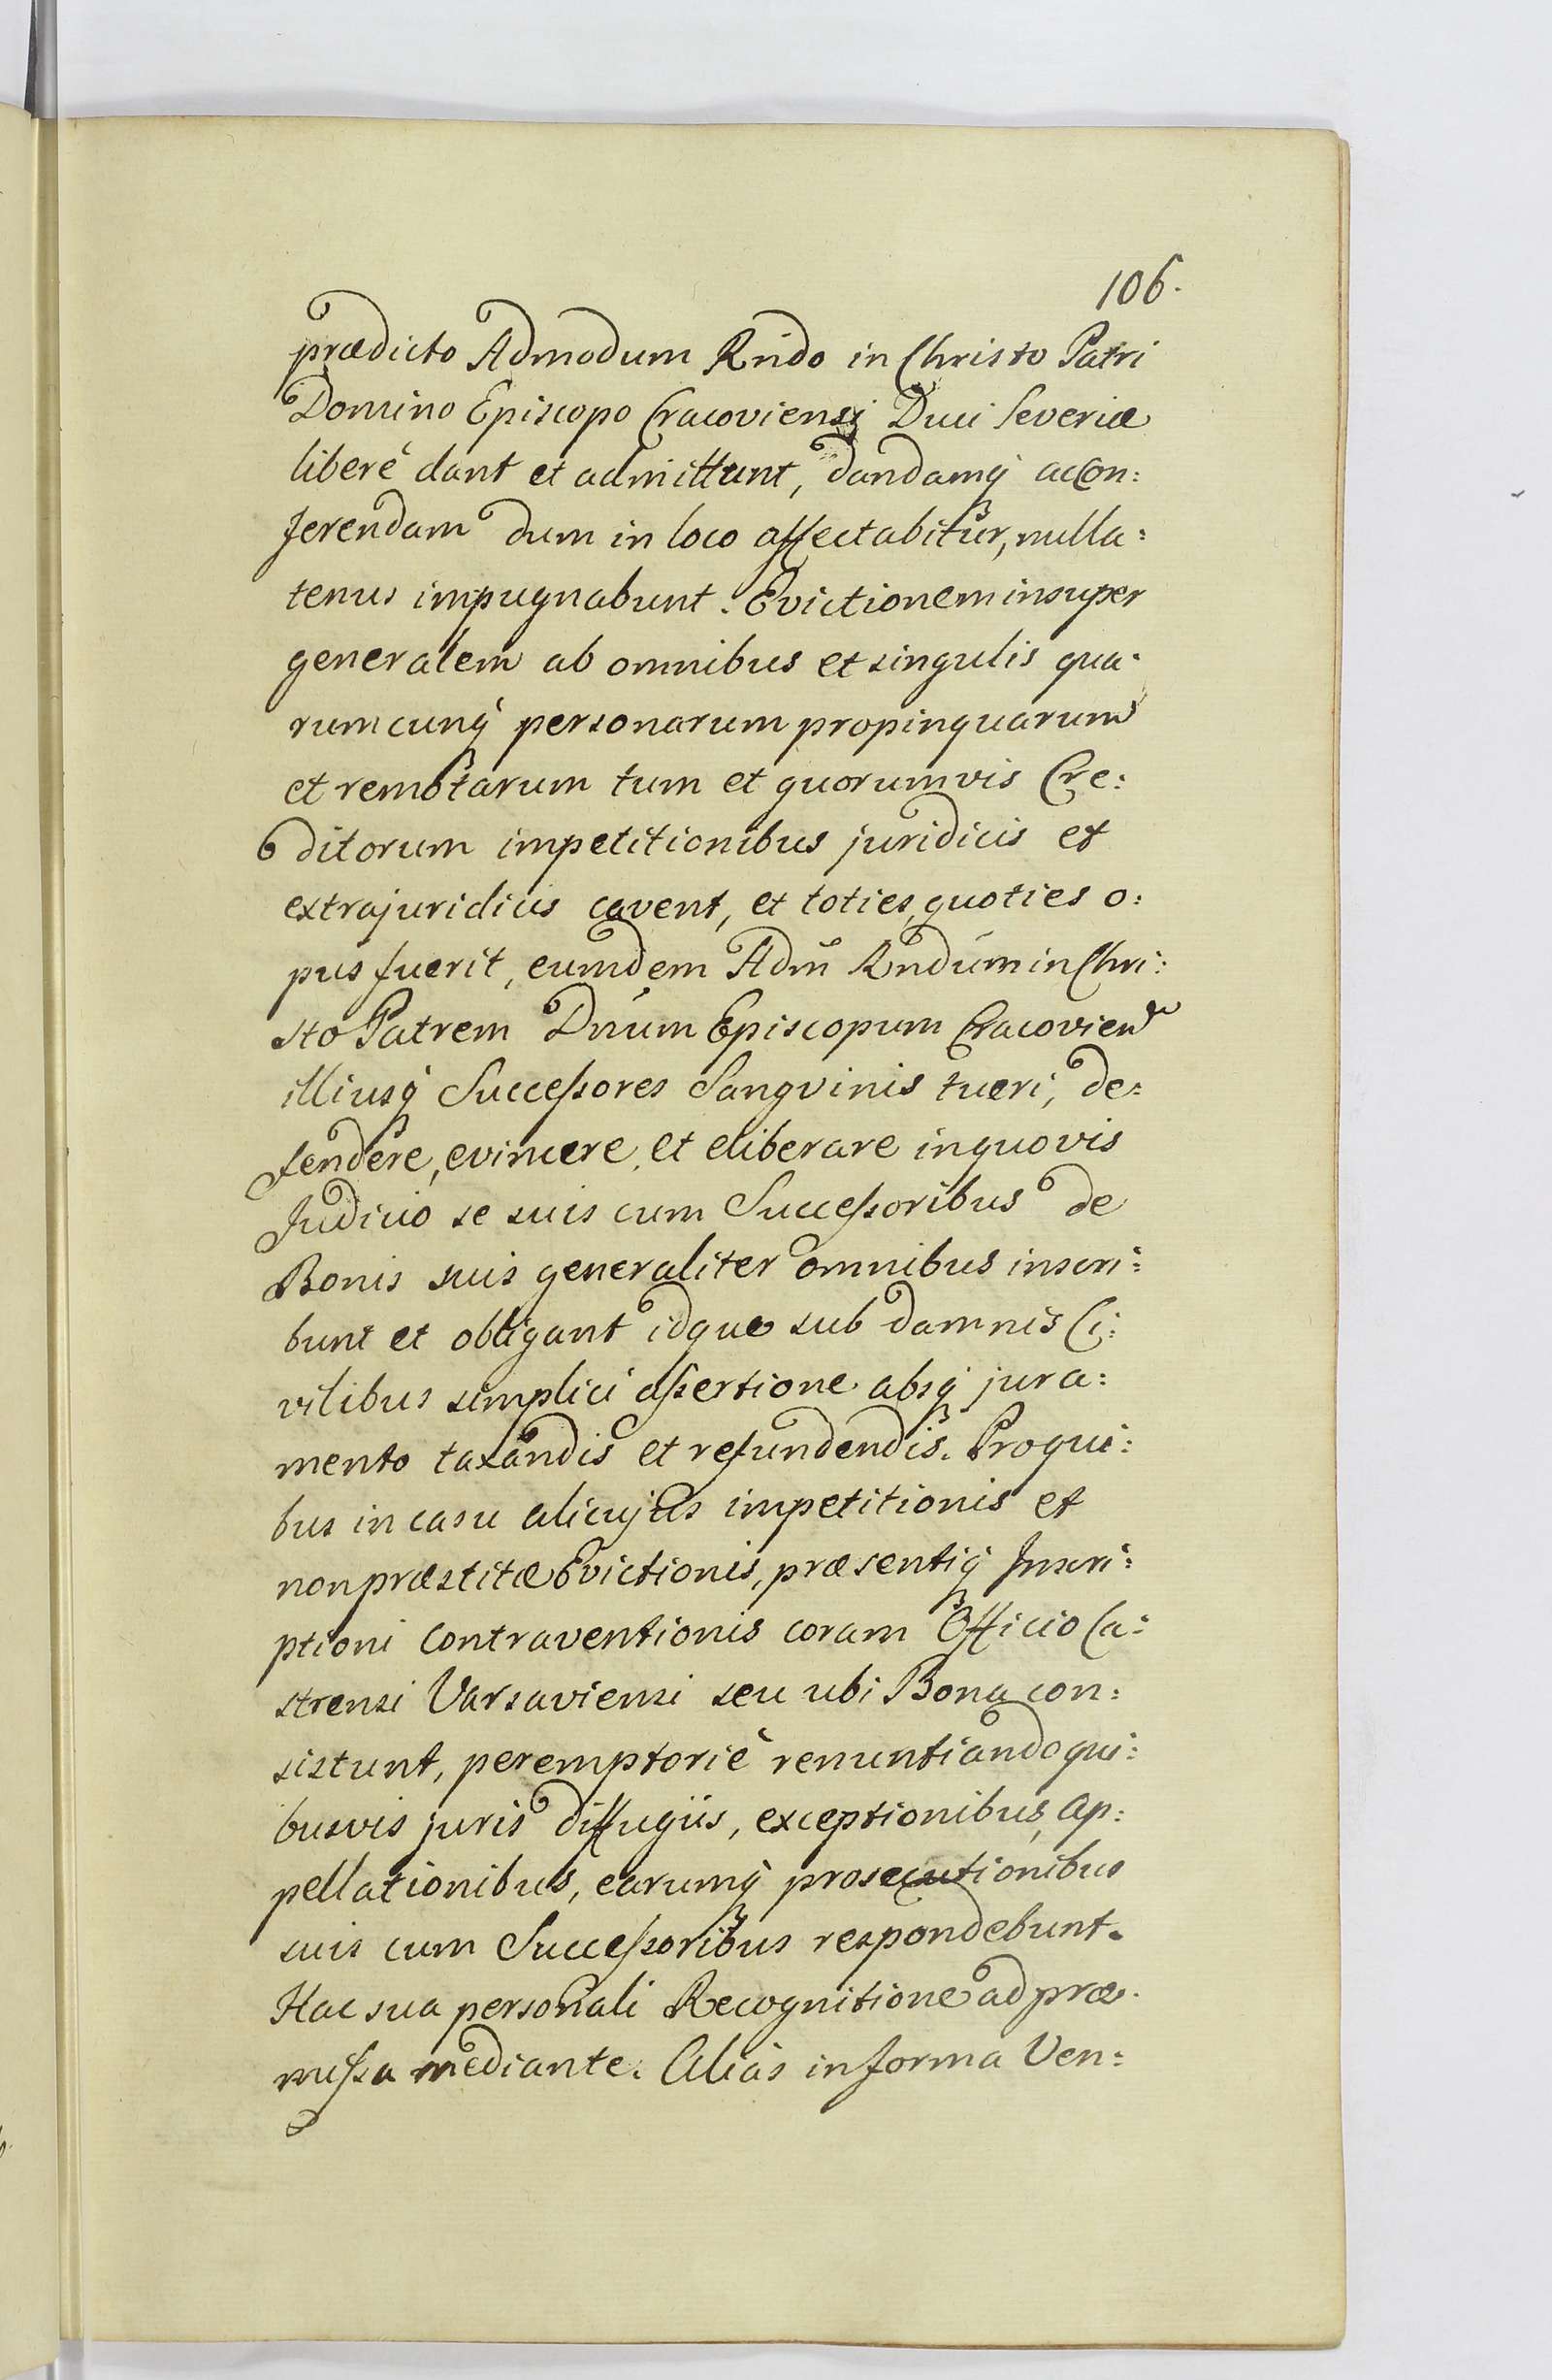 106.
prædicto Admodum Rndo in Christo Patri
Domino Episcopo Cracoviensi Duci Severiæ
liberè dant et admittunt, dandamq́ ac con:
ferendam dum in loco affectabitur, nulla:
tenus impugnabunt. Evictionem insuper
generalem ab omnibus et singulis qua:
rumcunq́ personarum propinquarum
et remotarum tum et quorumvis Cre:
ditorum impetitionibus juridicis et
extrajuridicis cavent, et toties, quoties o:
pus fuerit, eumdem Adm̃ Rndum in Chri:
sto Patrem Dnum Episcopum Cracovien
illiusq́ Successores Sangvinis tueri, de:
fendere, evincere, et eliberare in quovis
Judicio se suis cum Successoribus de
Bonis suis generaliter omnibus inscri:
bunt et obligant idque sub damnis Ci:
vilibus simplici assertione absq́ jura:
mento taxandis et refundendis. Pro qui:
bus in casu alicujus impetitionis et
non præstitæ Evictionis, præsentiq́ Inscri:
ptioni Contraventionis coram Officio Ca:
strensi Varsaviensi seu ubi Bona con:
sistunt, peremptoriè renuntiando qui:
busvis juris diffugiis, exceptionibus, ap:
pellationibus, earumq́ prosecutionibus
suis cum Successoribus respondebunt.
Hac sua personali Recognitione ad præ:
missa mediante. Aliàs in forma Ven: